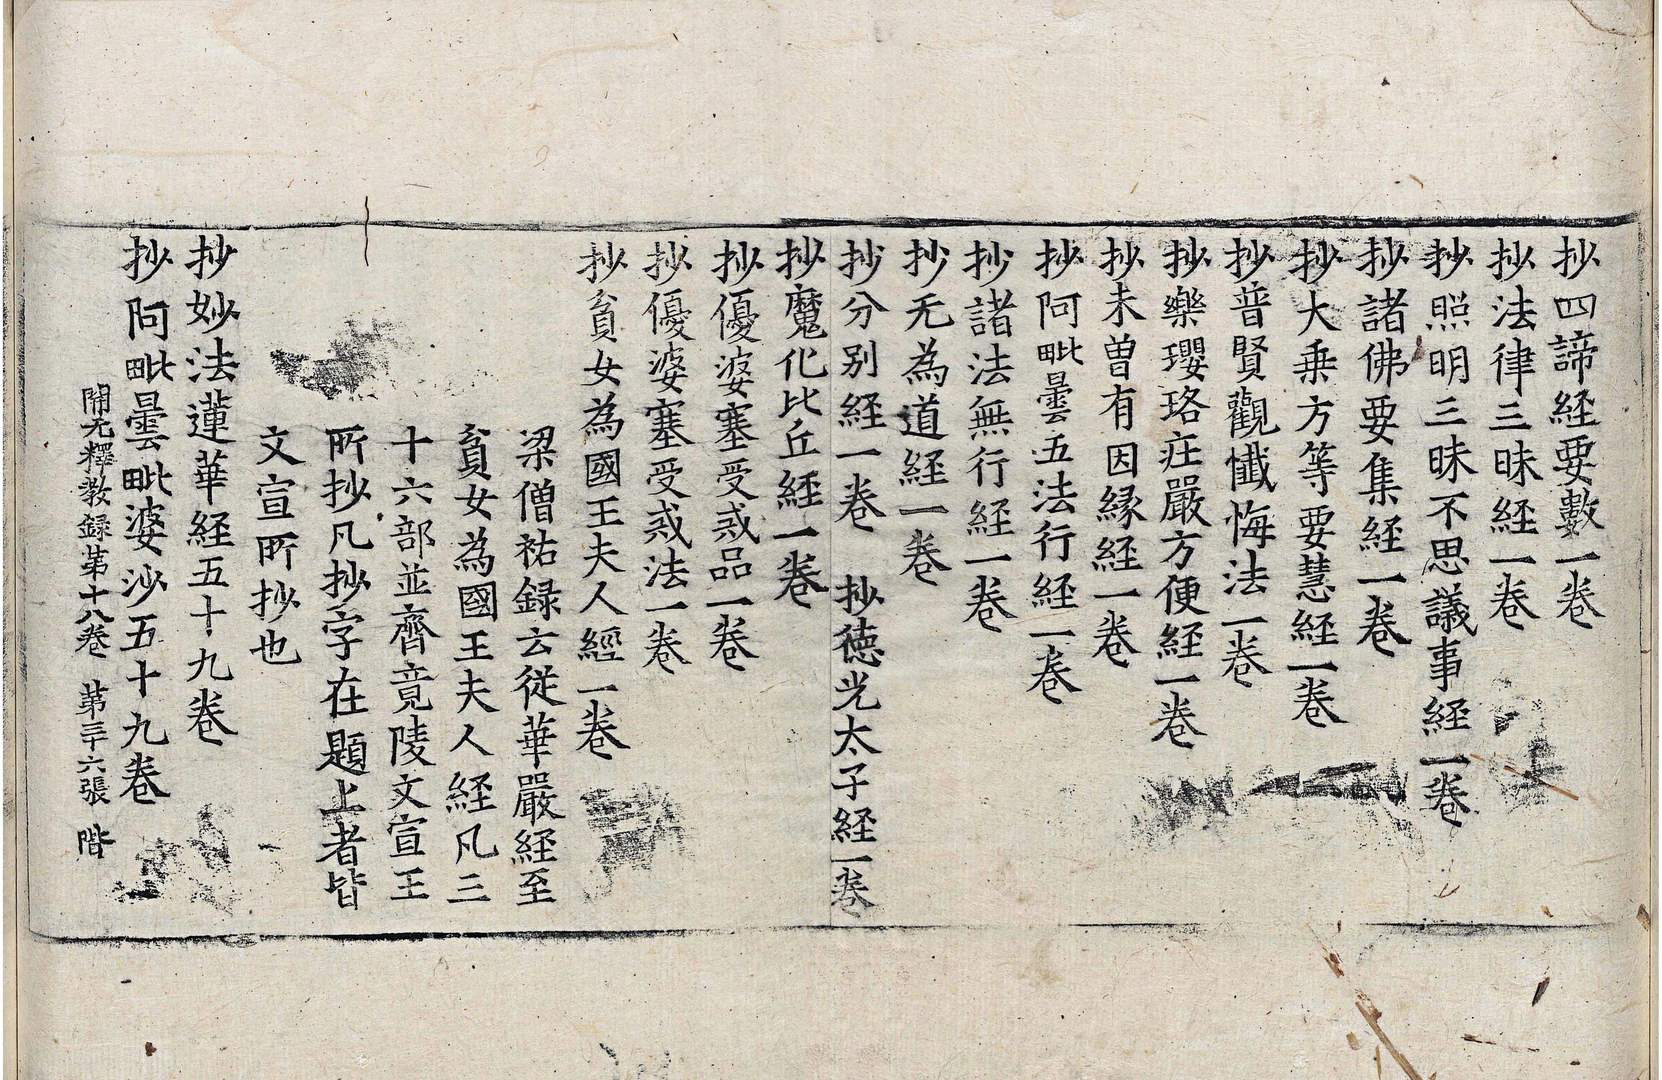 抄四諦経要數一卷
抄法律三昧経一卷
抄照明三昧不思議事経一卷
抄諸佛要集経一卷
抄大乗方等要慧経一卷
抄普賢觀懺悔法一卷
抄樂瓔珞庄嚴方便経一卷
抄未曽有因縁経一卷
抄阿毗曇五法行経一卷
抄諸法無行経一卷
抄无為道経一卷
抄分别経一卷　抄徳光太子経一卷
抄魔化比丘経一卷
抄優婆塞受戒品一卷
抄優婆塞受戒法一卷
抄貧女為國王夫人經一卷
梁僧祐録云従華嚴経至
貧女為國王夫人経凡三
十六部並齊竟陵文宣王
所抄凡抄字在題上者皆
文宣所抄也
抄妙法蓮華経五十九卷
抄阿毗曇毗婆沙五十九卷
開元釋教録第十八卷　第三十六張　階